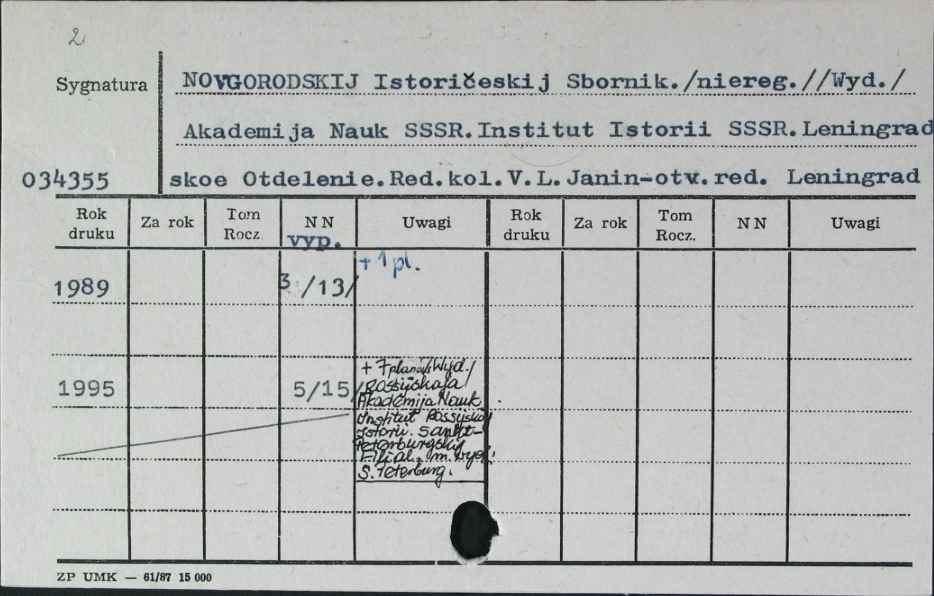 2
Sygnatura
NOVGORODSKIJ Istoričeskij Sbornik./niereg.//Wyd./
Akademija Nauk SSSR.Institut Istorii SSSR.Leningrad
034355
skoe Otdelenie.Red.kol.V.L.Janin-otv.red. Leningrad
Rok druku Za rok Tom Rocz. N N Uwagi Rok druku Za rok Tom Rocz. N N Uwagi
vyp.
1989 3 /13/ + 1 pl.
1995 5/15/ + 7 planów/Wyd./
Rossijskaja
Akademija Nauk
Institut Rossyskoj
Istorii. Sankt-
Peterburgskij
Filial. m. wyd.
S. Peterburg.
ZP UMK — 61/87 15 000